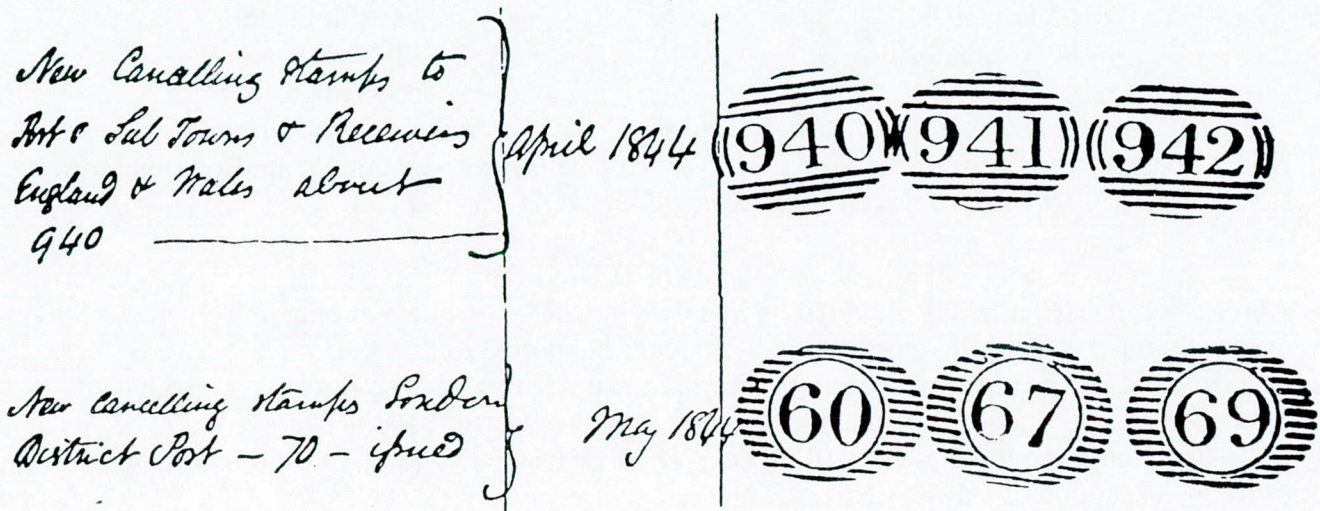 New Cancelling Stamps to
Post & Sub Towns & Receivers
England & Wales about
940
April 1844
940 941 942
New cancelling stamps London
District Post – 70 – issued
May 1844
60 67 69